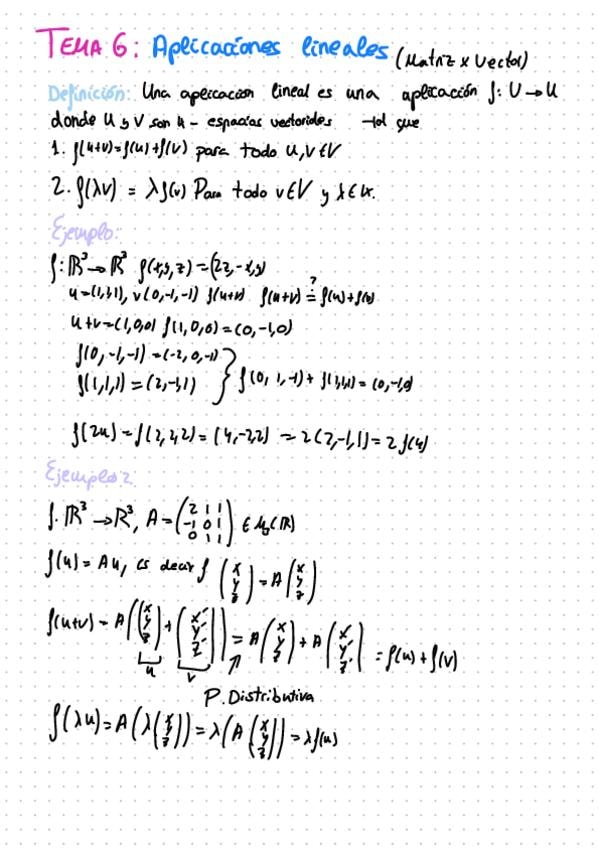 TEMA 6: Aplicaciones lineales (Matriz x Vector)
Definición: Una aplicación lineal es una aplicación f: U → U
donde U y V son k - espacios vectoriales tal que
1. f(u+v)=f(u)+f(v) para todo u,v∈V
2. f(λv) = λf(v) Para todo v∈V y λ∈k.
Ejemplo:
f: ℝ³→ℝ³ f(x,y,z)=(2z,-x,y)
u=(1,1,1), v(0,-1,-1) f(u+v) f(u+v) ≟ f(u)+f(v)
u+v=(1,0,0) f(1,0,0)=(0,-1,0)
f(0,-1,-1)=(-2,0,-1)
f(1,1,1)=(2,-1,1) } f(0,1,-1)+f(1,1,1)=(0,-1,0)
f(2u)=f(2,2,2)=(4,-2,2)=2(2,-1,1)=2f(u)
Ejemplo 2:
f: ℝ³→ℝ³, A=(2 1 1
-1 0 1
0 1 1) ∈ M₃(ℝ)
f(u)=Au, es decir f (x y z) = A (x y z)
f(u+v)=A((x y z)+(x' y' z'))=A(x y z)+A(x' y' z')=f(u)+f(v)
u v
P. Distributiva
f(λu)=A(λ(x y z))=λ(A(x y z))=λf(u)